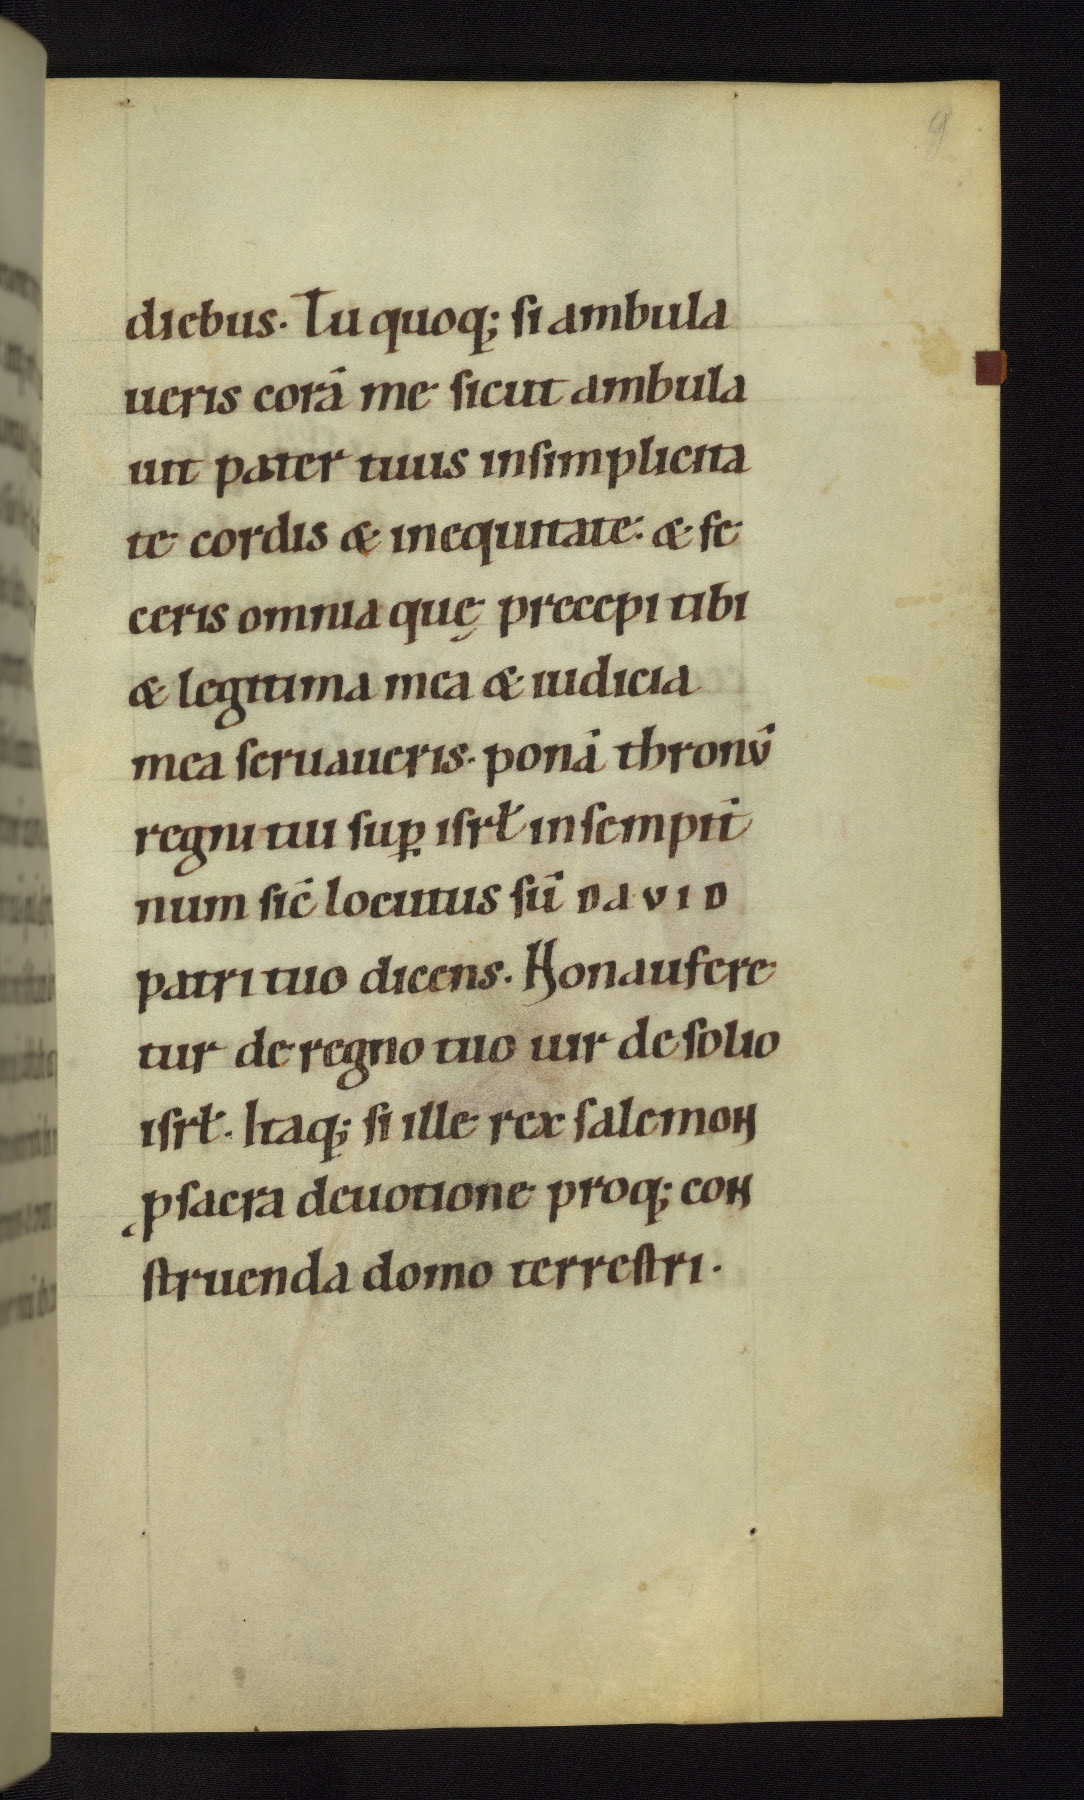 9
diebus. Tu quoq; si ambula
ueris corā me sicut ambula
uit pater tuus insimplicita
te cordis & inequitate. & fe
ceris omnia quę precepi tibi
& legitima mea & iudicia
mea seruaueris. ponā thronū
regni tui sup̱ isrł insempit̄
num sic̄ locutus sū DAVID
patri tuo dicens. Non aufere
tur de regno tuo uir de solio
isrł. Itaq; si ille rex salemon
p sacra deuotione proq; con
struenda domo terrestri.